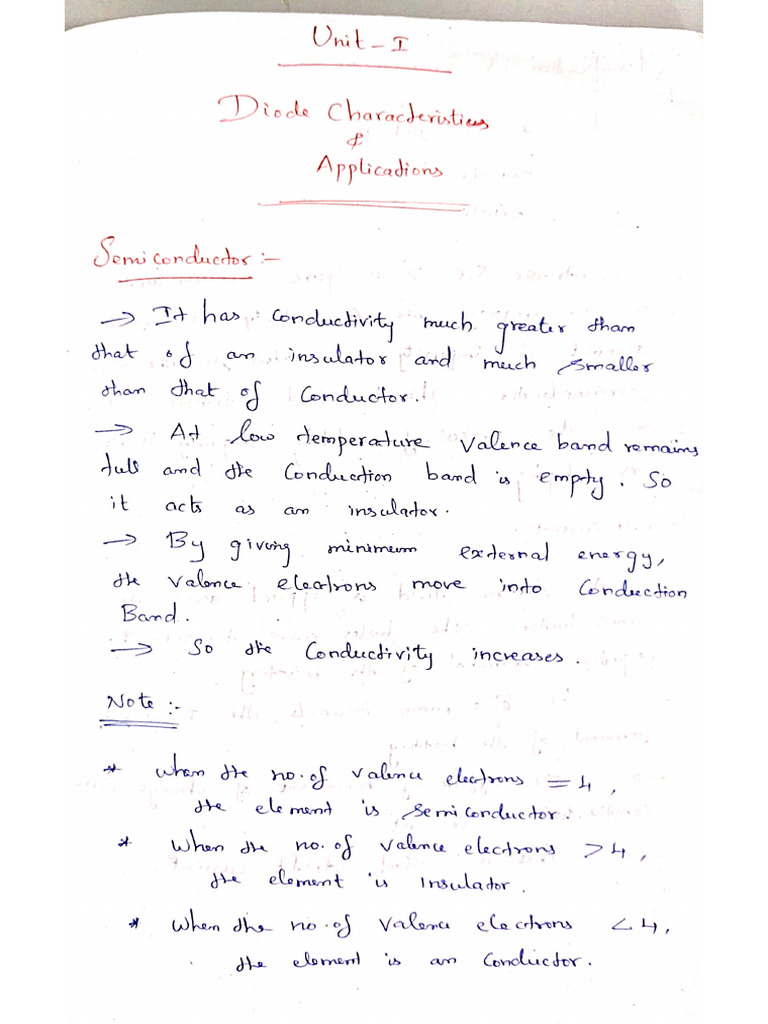 Unit - I
Diode Characteristics
&
Applications
Semiconductor :-
→ It has conductivity much greater than
that of an insulator and much smaller
than that of Conductor.
→ At low temperature valence band remains
full and the Conduction band is empty. So
it acts as an insulator.
→ By giving minimum external energy,
the valence electrons move into Conduction
Band.
→ So the Conductivity increases.
Note :-
* when the no. of valence electrons = 4,
the element is semiconductor.
* When the no. of valence electrons > 4,
the element is Insulator.
* when the no. of valence electrons < 4,
the element is an Conductor.